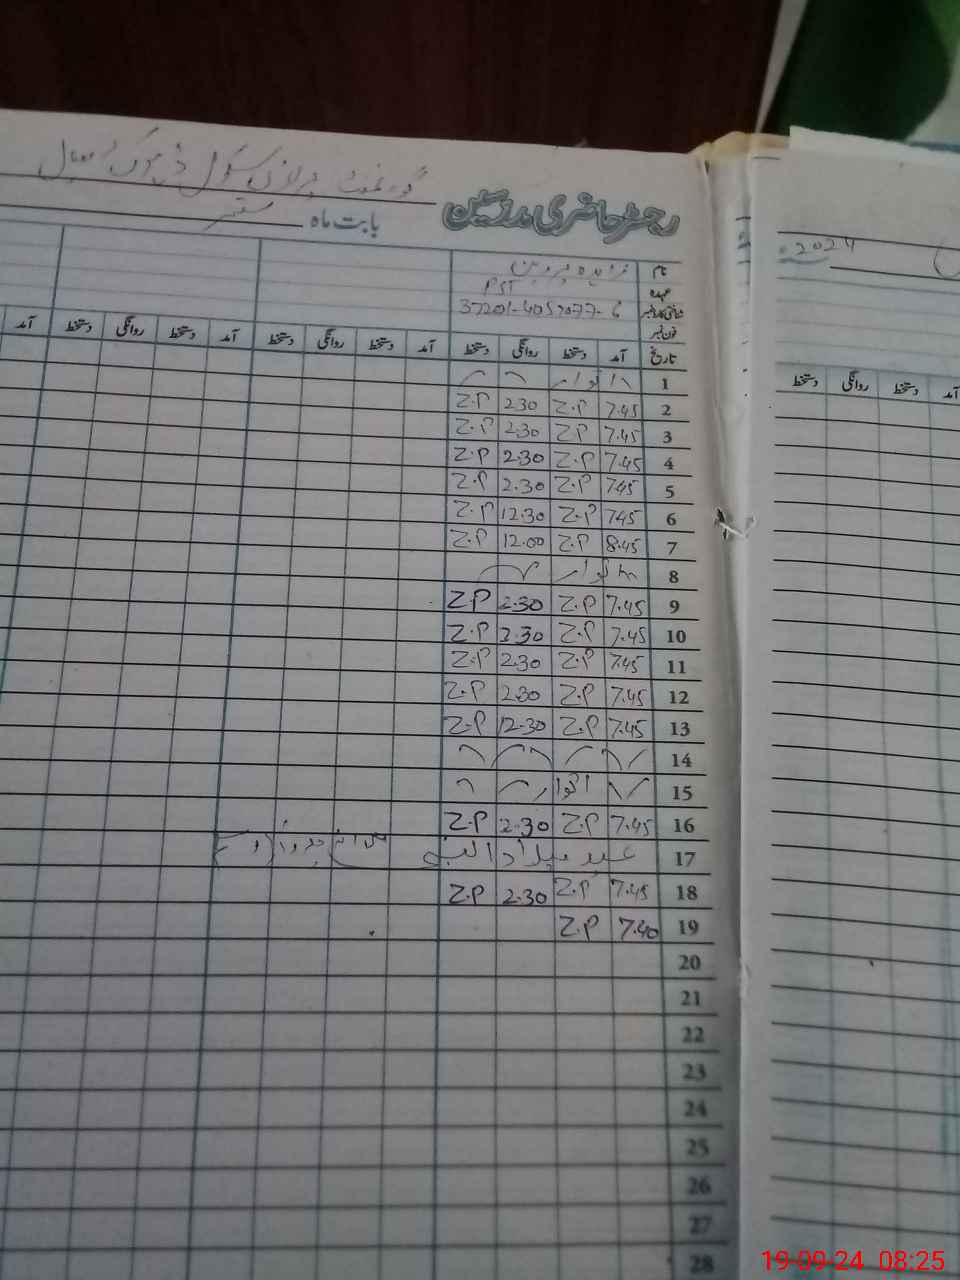 گورنمنٹ پرائمری سکول ڈھوک
رجسٹر حاضری مدرسین
بابت ماہ ستمبر
2024
نام زاہدہ پروین
عہدہ PST
شناختی کارڈ نمبر 37201-4052077-6
فون نمبر
تاریخ آمد دستخط روانگی دستخط آمد دستخط روانگی دستخط آمد دستخط روانگی دستخط آمد
آمد دستخط روانگی دستخط
1 اتوار
2 7.45 Z.P 2.30 Z.P
3 7.45 Z.P 2.30 Z.P
4 7.45 Z.P 2.30 Z.P
5 7.45 Z.P 2.30 Z.P
6 7.45 Z.P 12.30 Z.P
7 8.45 Z.P 12.00 Z.P
8 اتوار
9 7.45 Z.P 2.30 Z.P
10 7.45 Z.P 2.30 Z.P
11 7.45 Z.P 2.30 Z.P
12 7.45 Z.P 2.30 Z.P
13 7.45 Z.P 12.30 Z.P
14
15 اتوار
16 7.45 Z.P 2.30 Z.P
17 عید میلاد النبی
18 7.45 Z.P 2.30 Z.P
19 7.40 Z.P
20
21
22
23
24
25
26
27
28
19-09-24 08:25